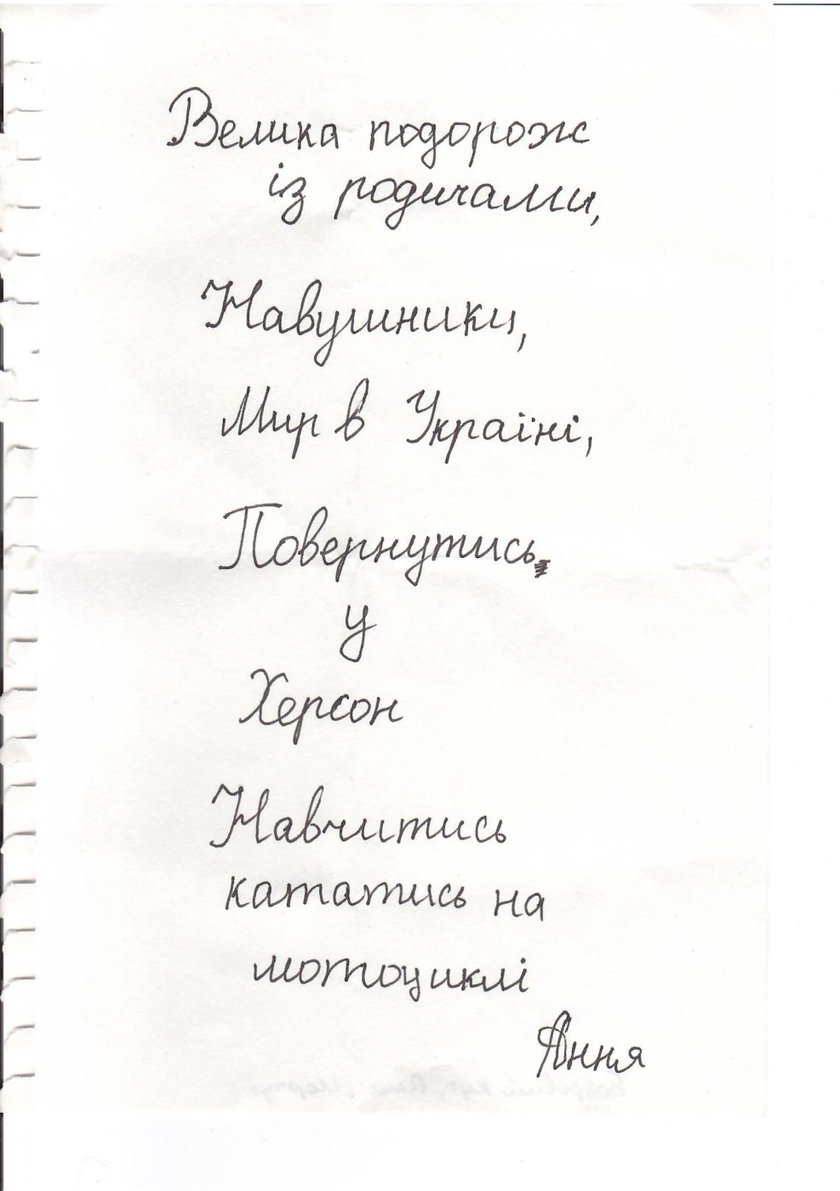 Велика подорож
із родичами,
Навушники,
Мир в Україні,
Повернутись
у
Херсон
Навчитись
кататись на
мотоциклі
Ання